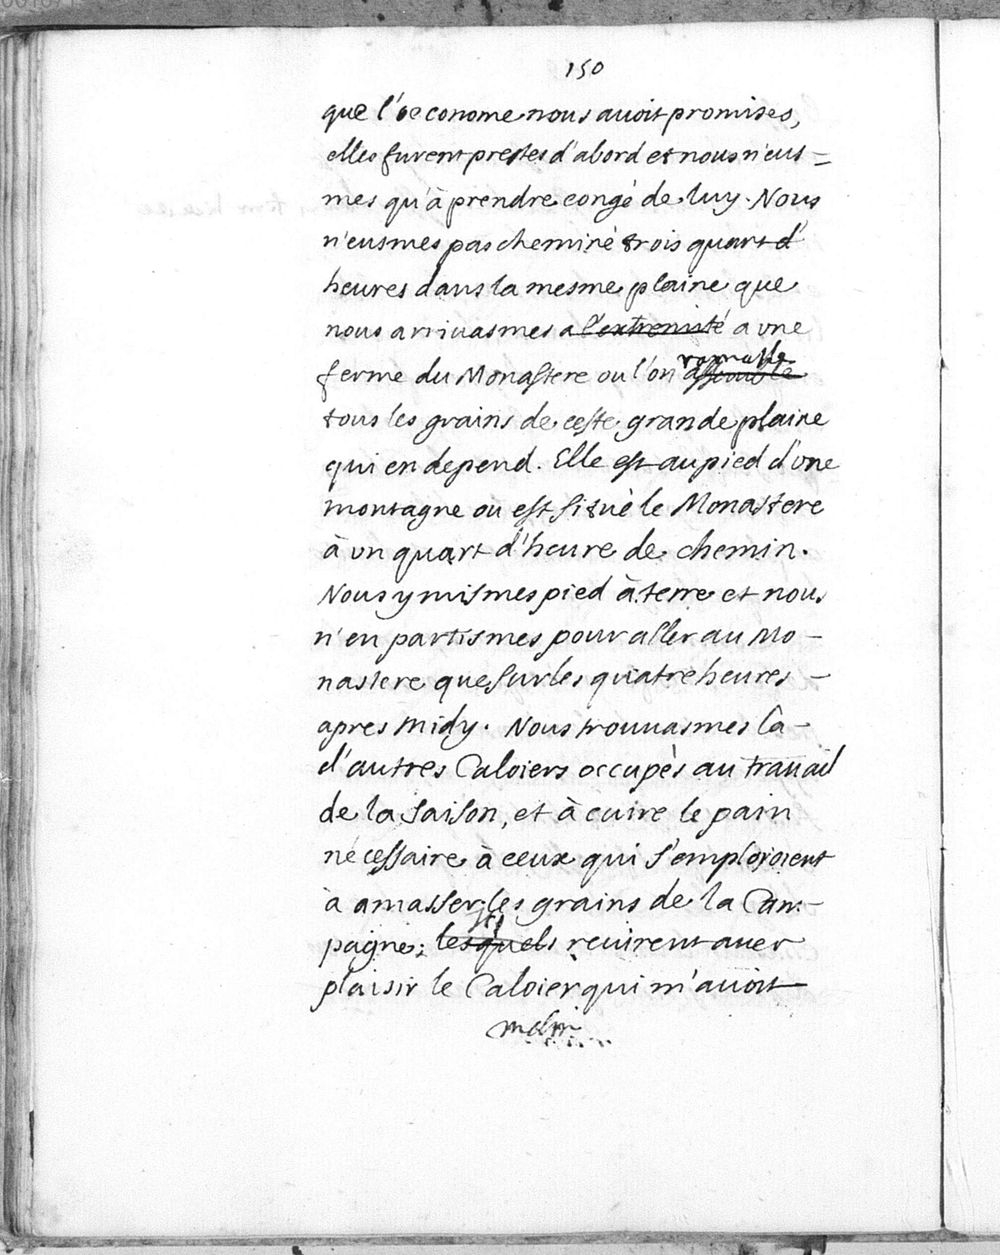 150
que l'oeconome nous auoit promises,
elles furent prestes d'abord et nous n'eus=
mes qu'à prendre congé de luy. Nous
n'eusmes pas cheminé trois quart d'
heures dans la mesme plaine que
nous arriuasmes a l'extremité a vne
ramasse
ferme du Monastere ou l'on assemble
tous les grains de ceste grande plaine
qui en depend. Elle est au pied d'vne
montagne ou est situè le Monastere
à vn quart d'heure de chemin.
Nous y mismes pied à terre et nous
n'en partismes pour aller au Mo-
nastere que sur les quatre heures
apres midy. Nous trouuasmes là
d'autres Caloiers occupès au trauail
de la saison, et à cuire le pain
nécessaire à ceux qui s'emploioient
à amasser les grains de la Cam-
Ils
pagne; lesquels reuirent auec
plaisir le Caloier qui m'auoit